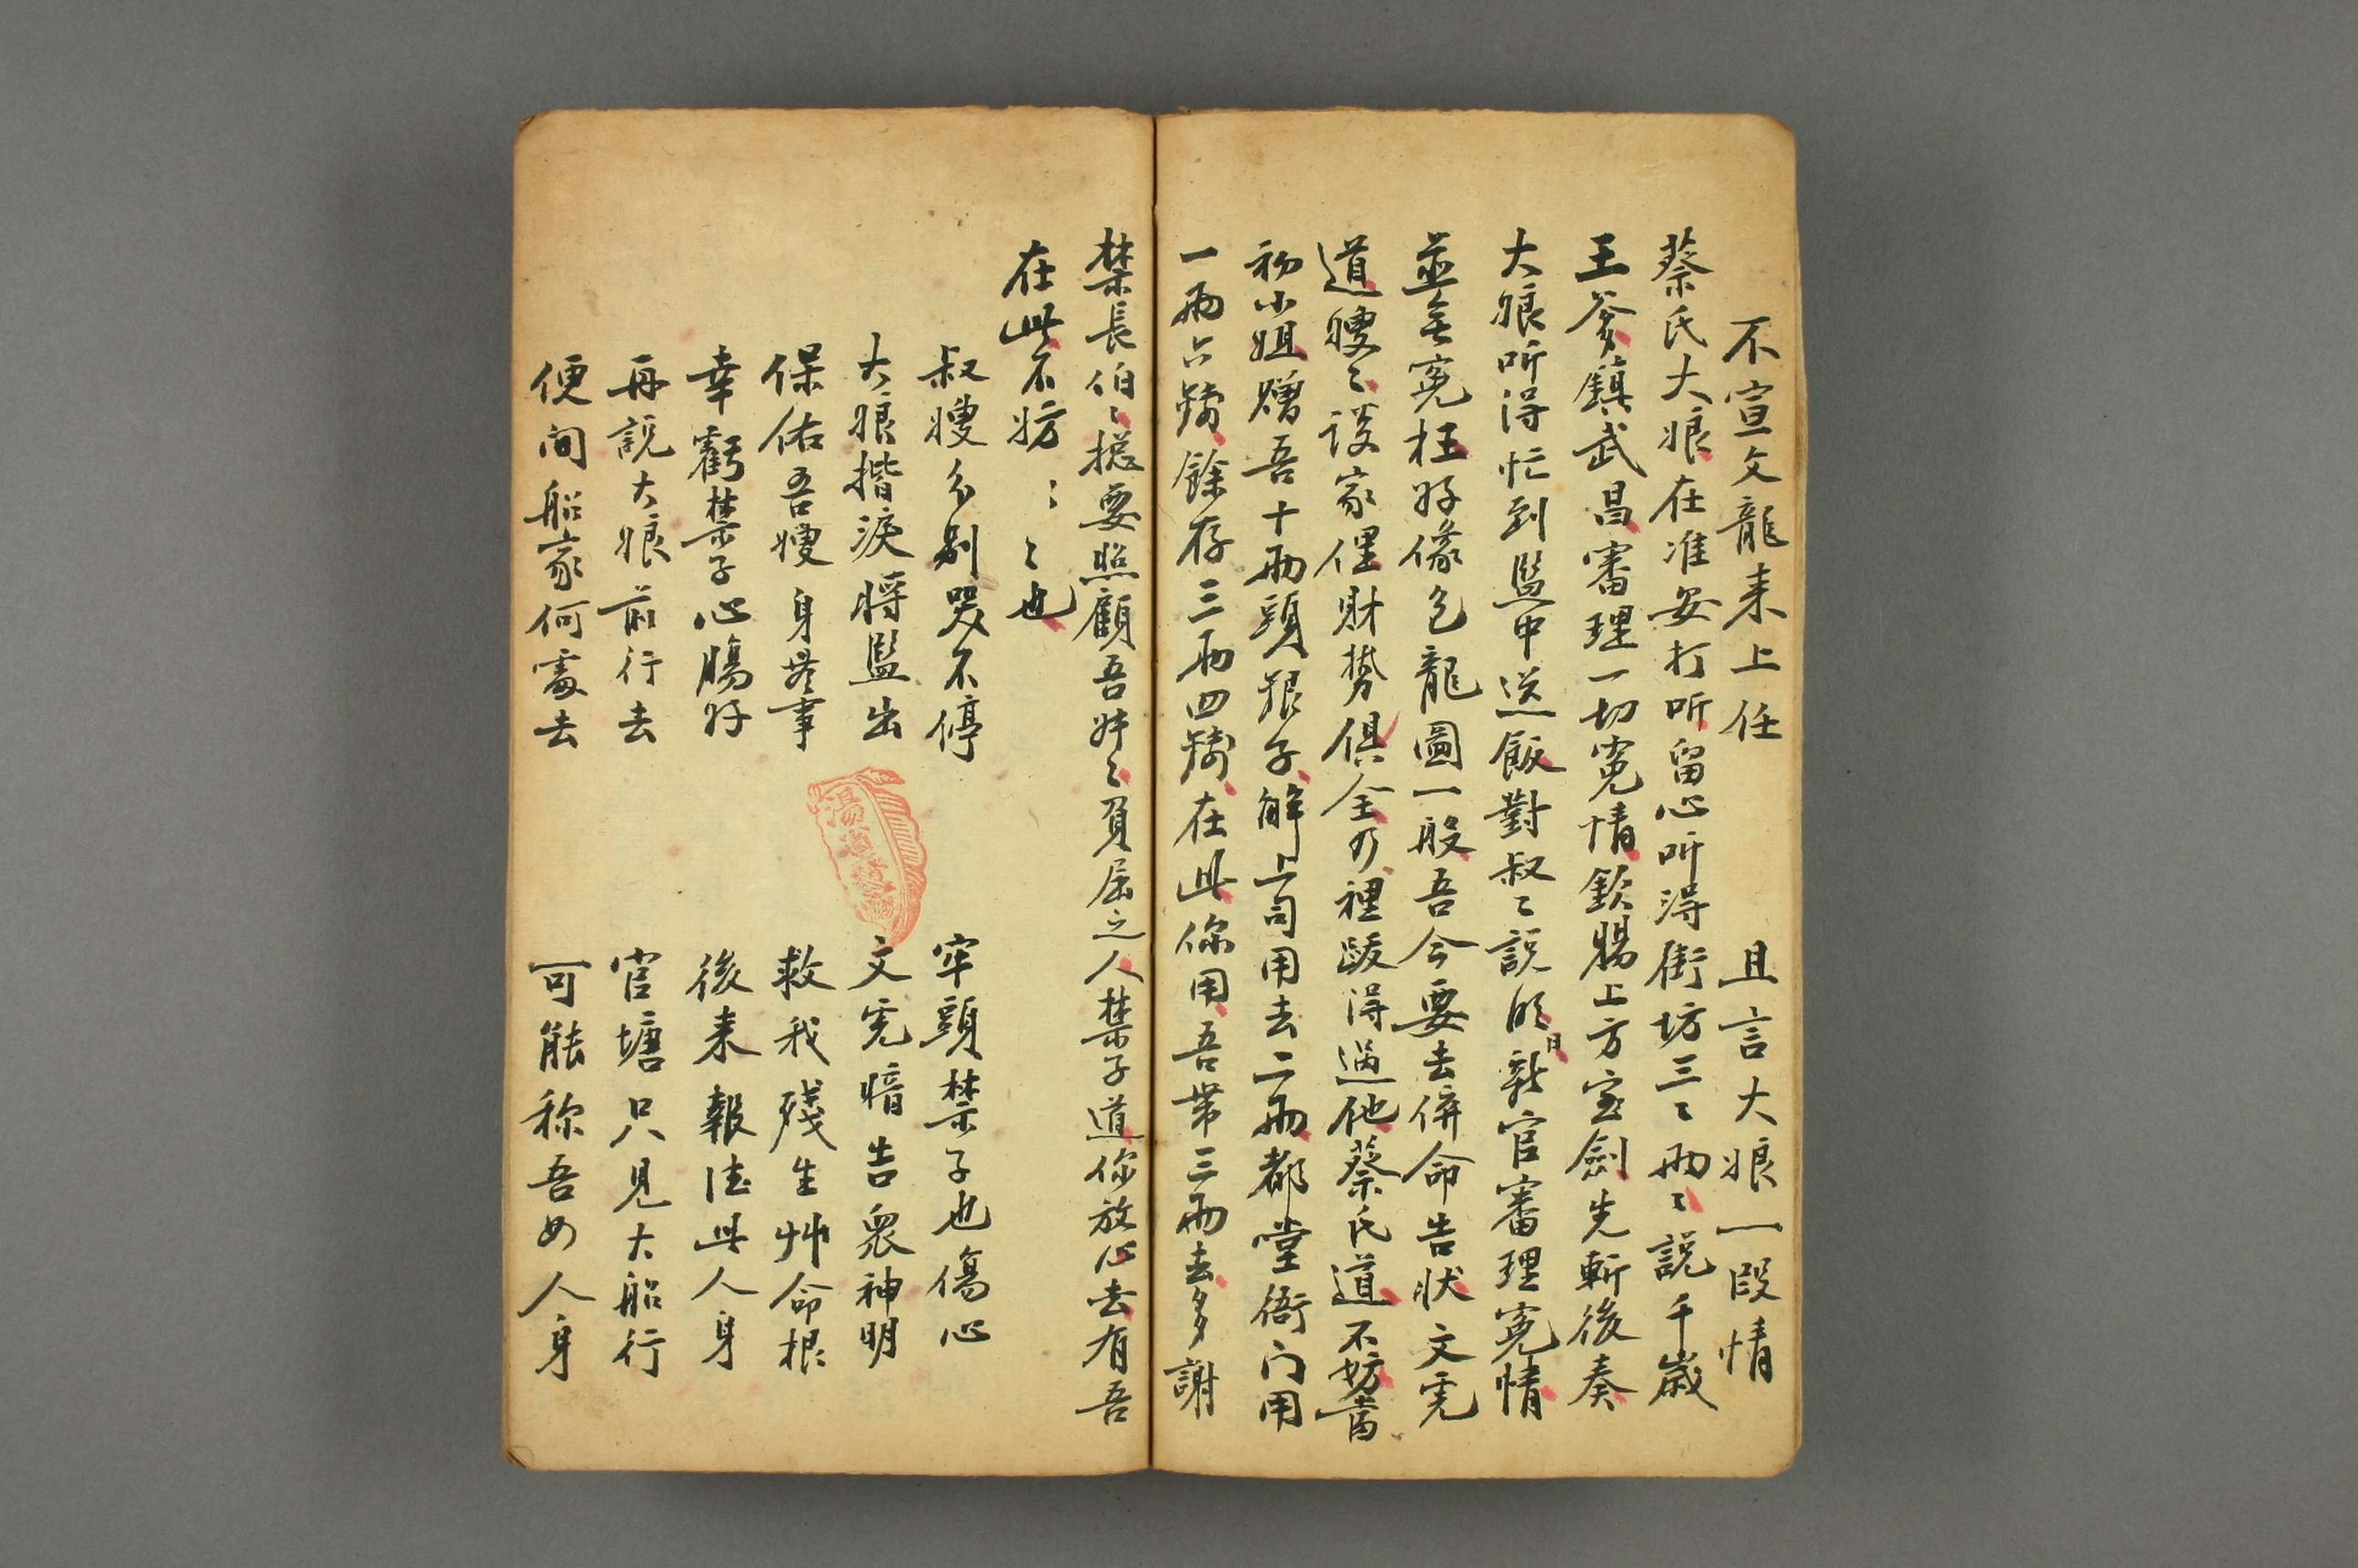 不宣文龍来上任　且言大娘一段情
蔡氏大娘在淮安打听留心听得街坊三〻两〻説千歲
王爷鎮武昌審理一切寃情欽賜上方宝劍先斬後奏
大娘听得忙到監中送飯對叔〻説明日新官審理寃情
並無寃枉好像包龍圖一般吾今要去併命告状文宪
道嫂〻談家俚財势俱全乃裡跋得過他蔡氏道不妨當
初小姐贈吾十两頭銀子解上司用去二两都堂衙门用
一两六錢餘存三两四錢在此你用吾帶三两去多謝
禁長伯〻揔要照顧吾妹〻負屈之人禁子道你放心去有吾
在此不妨〻〻也
叔嫂分别哭不停　牢頭禁子也傷心
大娘揩淚將監出　文宪暗告衆神明
保佑吾嫂身無事　救我殘生艸命根
幸虧禁子心腸好　後来報德此人身
再説大娘前行去　官塘只見大船行
便问船家何處去　可能称吾女人身